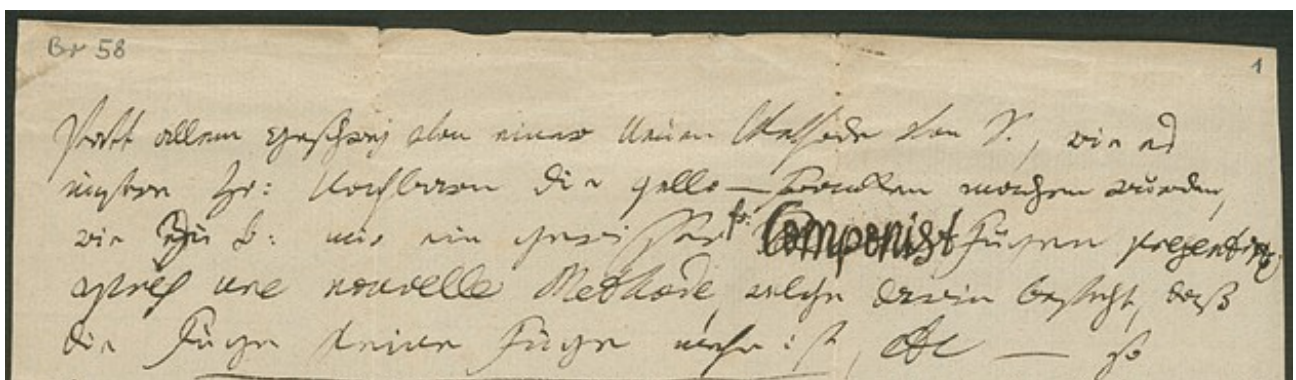 Br 58
1
Statt allem Geschrej von einer neuen Methode von V., wie es
unsere Hr: Nachbaren die gallo-Franken machen würden,
wie z. B: mir ein gewisser fr: Componist Fugen presentirte
après une nouvelle Methode, welche darin besteht, daß
die Fuge keine Fuge mehr ist, etc — so